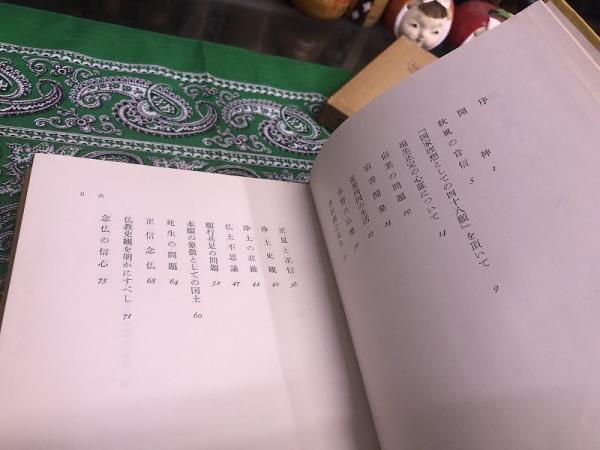 序
開神 1
秋風の音信 5
『国家理想としての四十八願』を頂いて 9
現生正定の心証について 14
信楽の問題 19
宿善開発 24
目次
正見と正信 36
浄土史観 40
浄土の荘厳 44
仏土不思議 47
願行具足の問題 52
本願の象徴としての国土 60
死生の問題 64
正信念仏 68
仏教史観を明かにすべし 71
念仏の信心 75